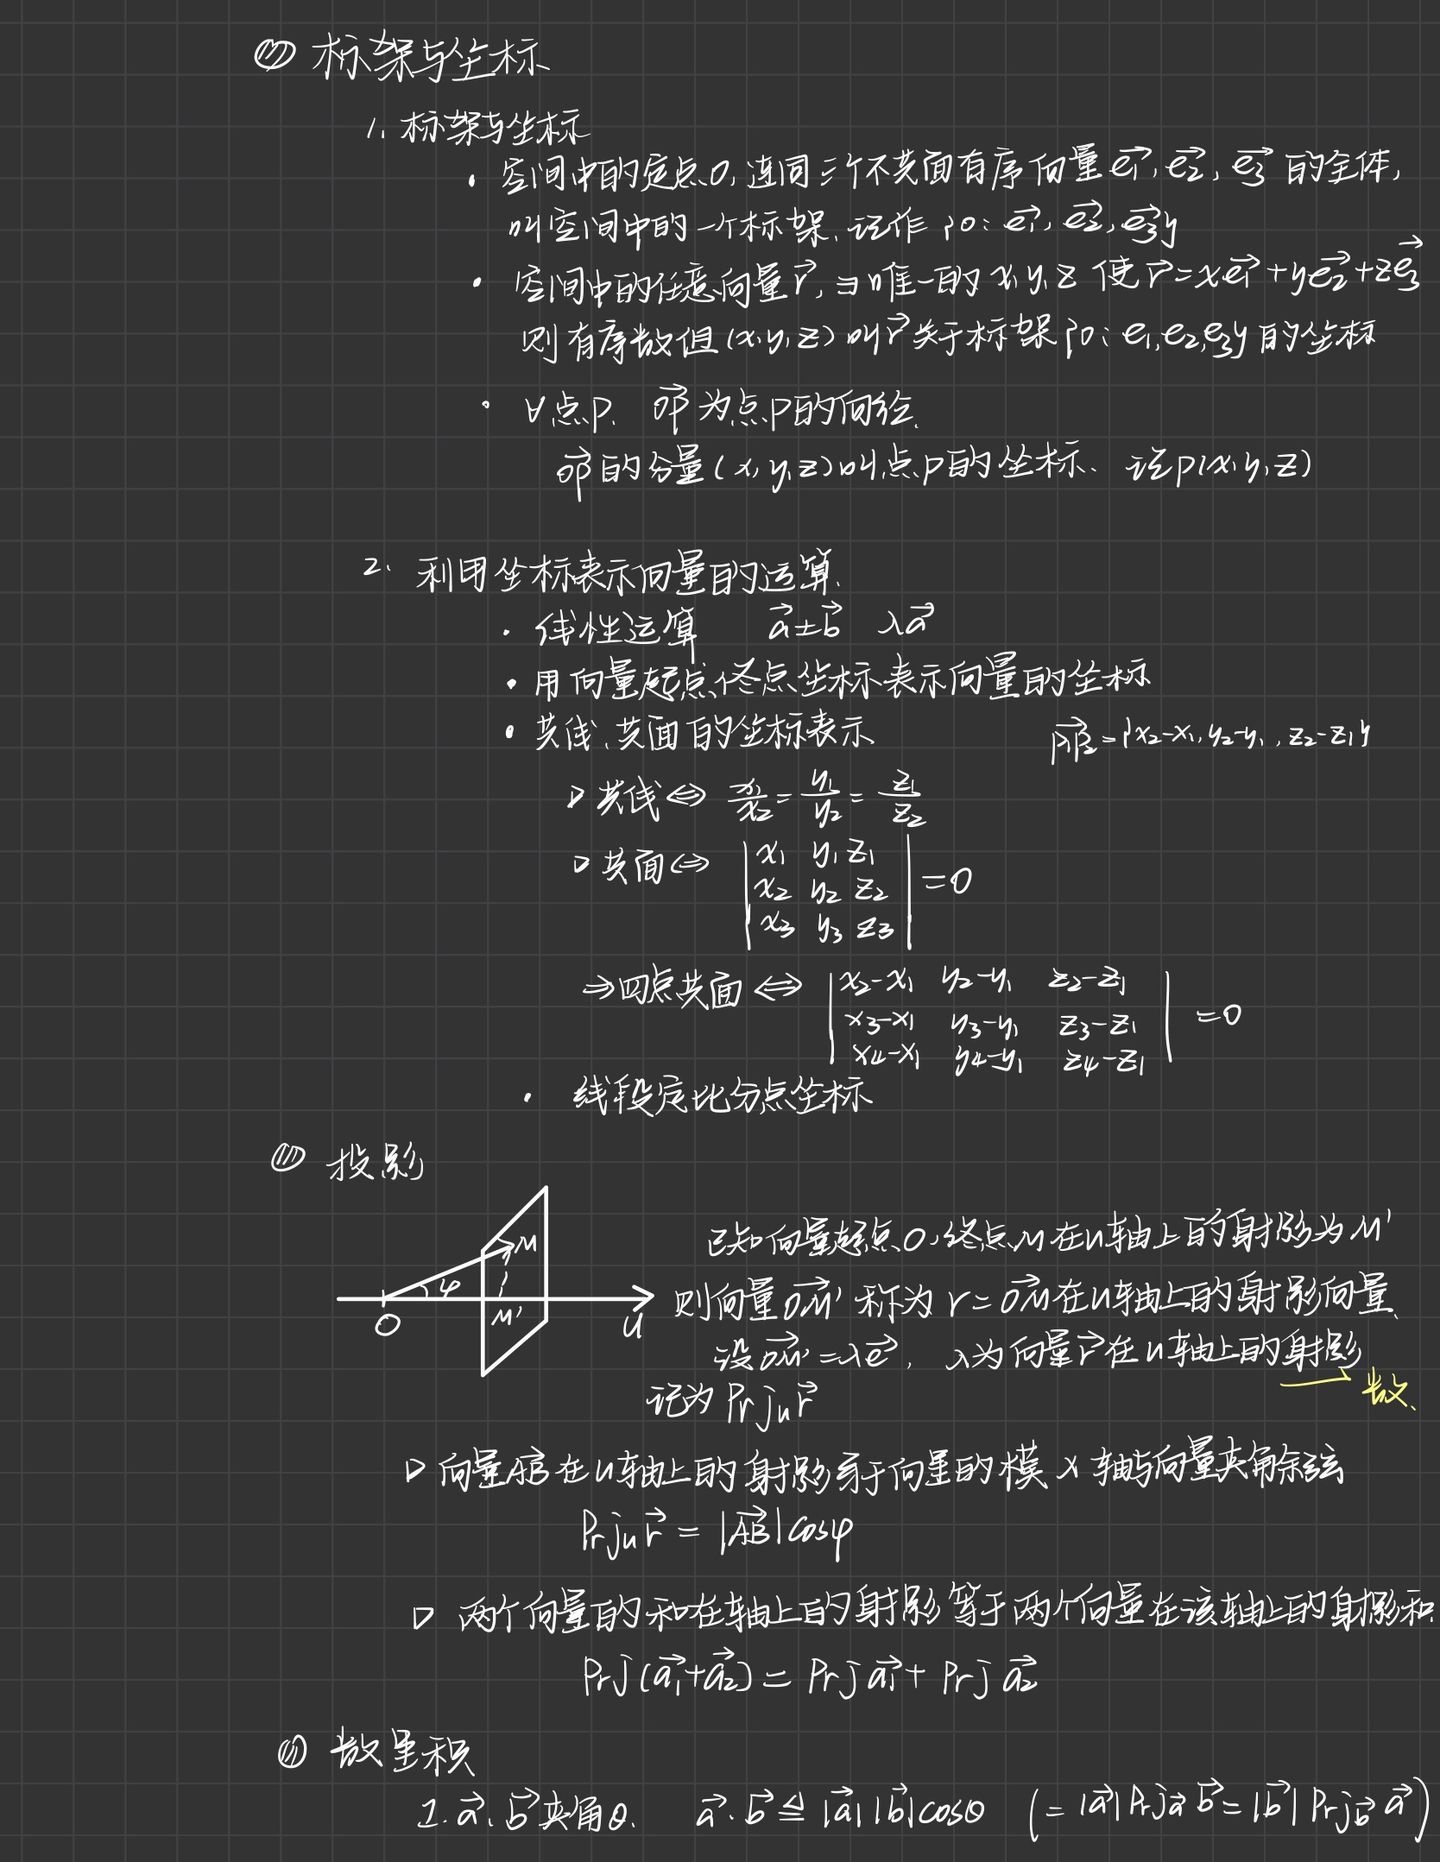 标架与坐标
1. 标架与坐标
· 空间中的定点O, 连同三个不共面有序向量 e₁⃗, e₂⃗, e₃⃗ 的全体,
叫空间中的一个标架, 记作 {O: e₁⃗, e₂⃗, e₃⃗}
· 空间中的任意向量 r⃗, ∃唯一的 x, y, z 使 r⃗ = xe₁⃗ + ye₂⃗ + ze₃⃗
则有序数组 (x, y, z) 叫 r⃗ 关于标架 {O: e₁, e₂, e₃} 的坐标
· ∀点P. OP⃗ 为点P的向径.
OP⃗ 的分量 (x, y, z) 叫点P的坐标. 记 P(x, y, z)
2. 利用坐标表示向量的运算.
· 线性运算 a⃗±b⃗ λa⃗
· 用向量起点、终点坐标表示向量的坐标
· 共线、共面的坐标表示
P₁P₂⃗ = {x₂-x₁, y₂-y₁, z₂-z₁}
▷ 共线 ⇔ x₁/x₂ = y₁/y₂ = z₁/z₂
▷ 共面 ⇔ | x₁ y₁ z₁ |
| x₂ y₂ z₂ | = 0
| x₃ y₃ z₃ |
⇒ 四点共面 ⇔ | x₂-x₁ y₂-y₁ z₂-z₁ |
| x₃-x₁ y₃-y₁ z₃-z₁ | = 0
| x₄-x₁ y₄-y₁ z₄-z₁ |
· 线段定比分点坐标
投影
M
φ
M'
O
u
已知向量起点O, 终点M在u轴上的射影为M'
则向量OM'⃗ 称为 r = OM⃗ 在u轴上的射影向量.
设OM'⃗ = λe⃗, λ为向量r⃗在u轴上的射影
数.
记为 Prjᵤr⃗
▷ 向量AB⃗在u轴上的射影等于向量的模 × 轴与向量夹角余弦
Prjᵤr⃗ = |AB⃗|cosφ
▷ 两个向量的和在轴上的射影等于两个向量在该轴上的射影和.
Prj(a₁⃗+a₂⃗) = Prj a₁⃗ + Prj a₂⃗
数量积
1. a⃗, b⃗ 夹角θ. a⃗·b⃗ ≜ |a⃗||b⃗|cosθ (= |a⃗| Prj_a⃗ b⃗ = |b⃗| Prj_b⃗ a⃗)